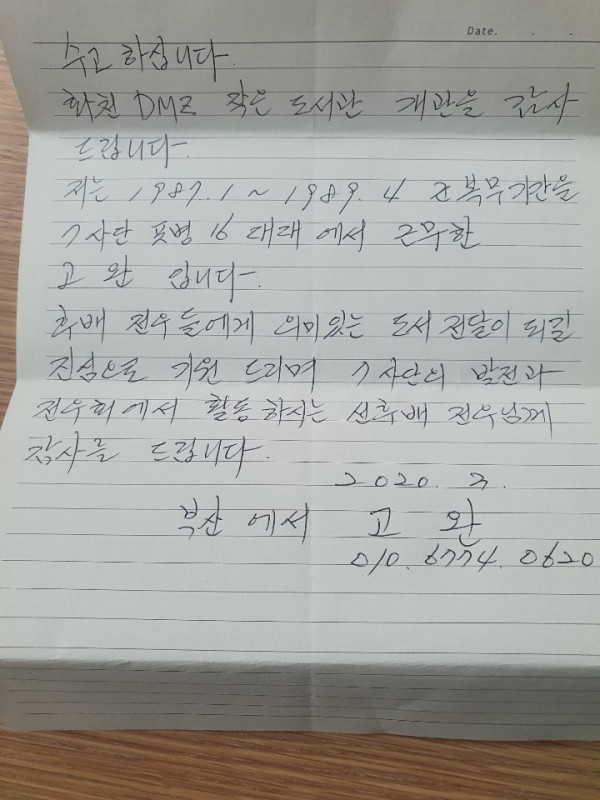 Date. . .
수고 하십니다.
화천 DMZ 작은 도서관 개관을 감사
드립니다.
저는 1987.1 ~ 1989.4 군복무기간을
7사단 포병 16 대대 에서 근무한
고 완 입니다.
후배 전우들에게 의미있는 도서 전달이 되길
진심으로 기원 드리며 7사단의 발전과
전우회에서 활동하시는 선후배 전우님께
감사를 드립니다.
2020. 3.
부산 에서 고 완
010. 6774. 0620